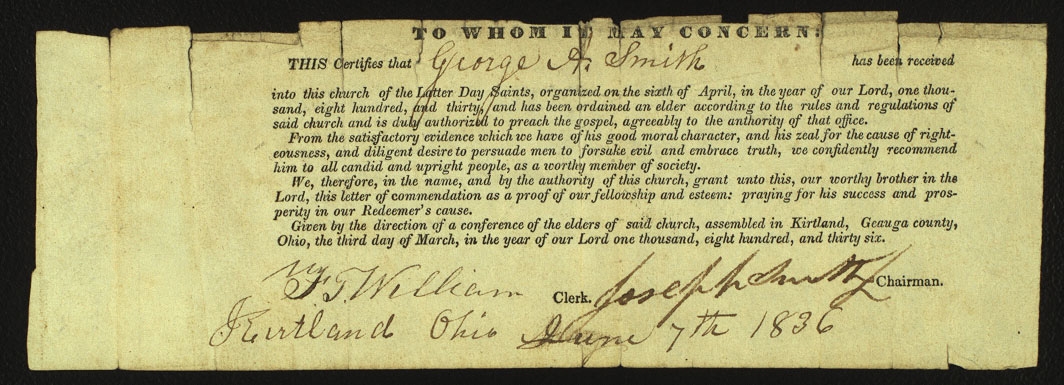 TO WHOM IT MAY CONCERN:
THIS Certifies that George A. Smith has been received
into this church of the Latter Day Saints, organized on the sixth of April, in the year of our Lord, one thou-
sand, eight hundred, and thirty, and has been ordained an elder according to the rules and regulations of
said church and is duly authorized to preach the gospel, agreeably to the anthority of that office.
From the satisfactory evidence which we have of his good moral character, and his zeal for the cause of right-
eousness, and diligent desire to persuade men to forsake evil and embrace truth, we confidently recommend
him to all candid and upright people, as a worthy member of society.
We, therefore, in the name, and by the authority of this church, grant unto this, our worthy brother in the
Lord, this letter of commendation as a proof of our fellowship and esteem: praying for his success and pros-
perity in our Redeemer's cause.
Given by the direction of a conference of the elders of said church, assembled in Kirtland, Geauga county,
Ohio, the third day of March, in the year of our Lord one thousand, eight hundred, and thirty six.
William Clerk. Joseph Smith Chairman.
Kirtland Ohio June 7th 1836